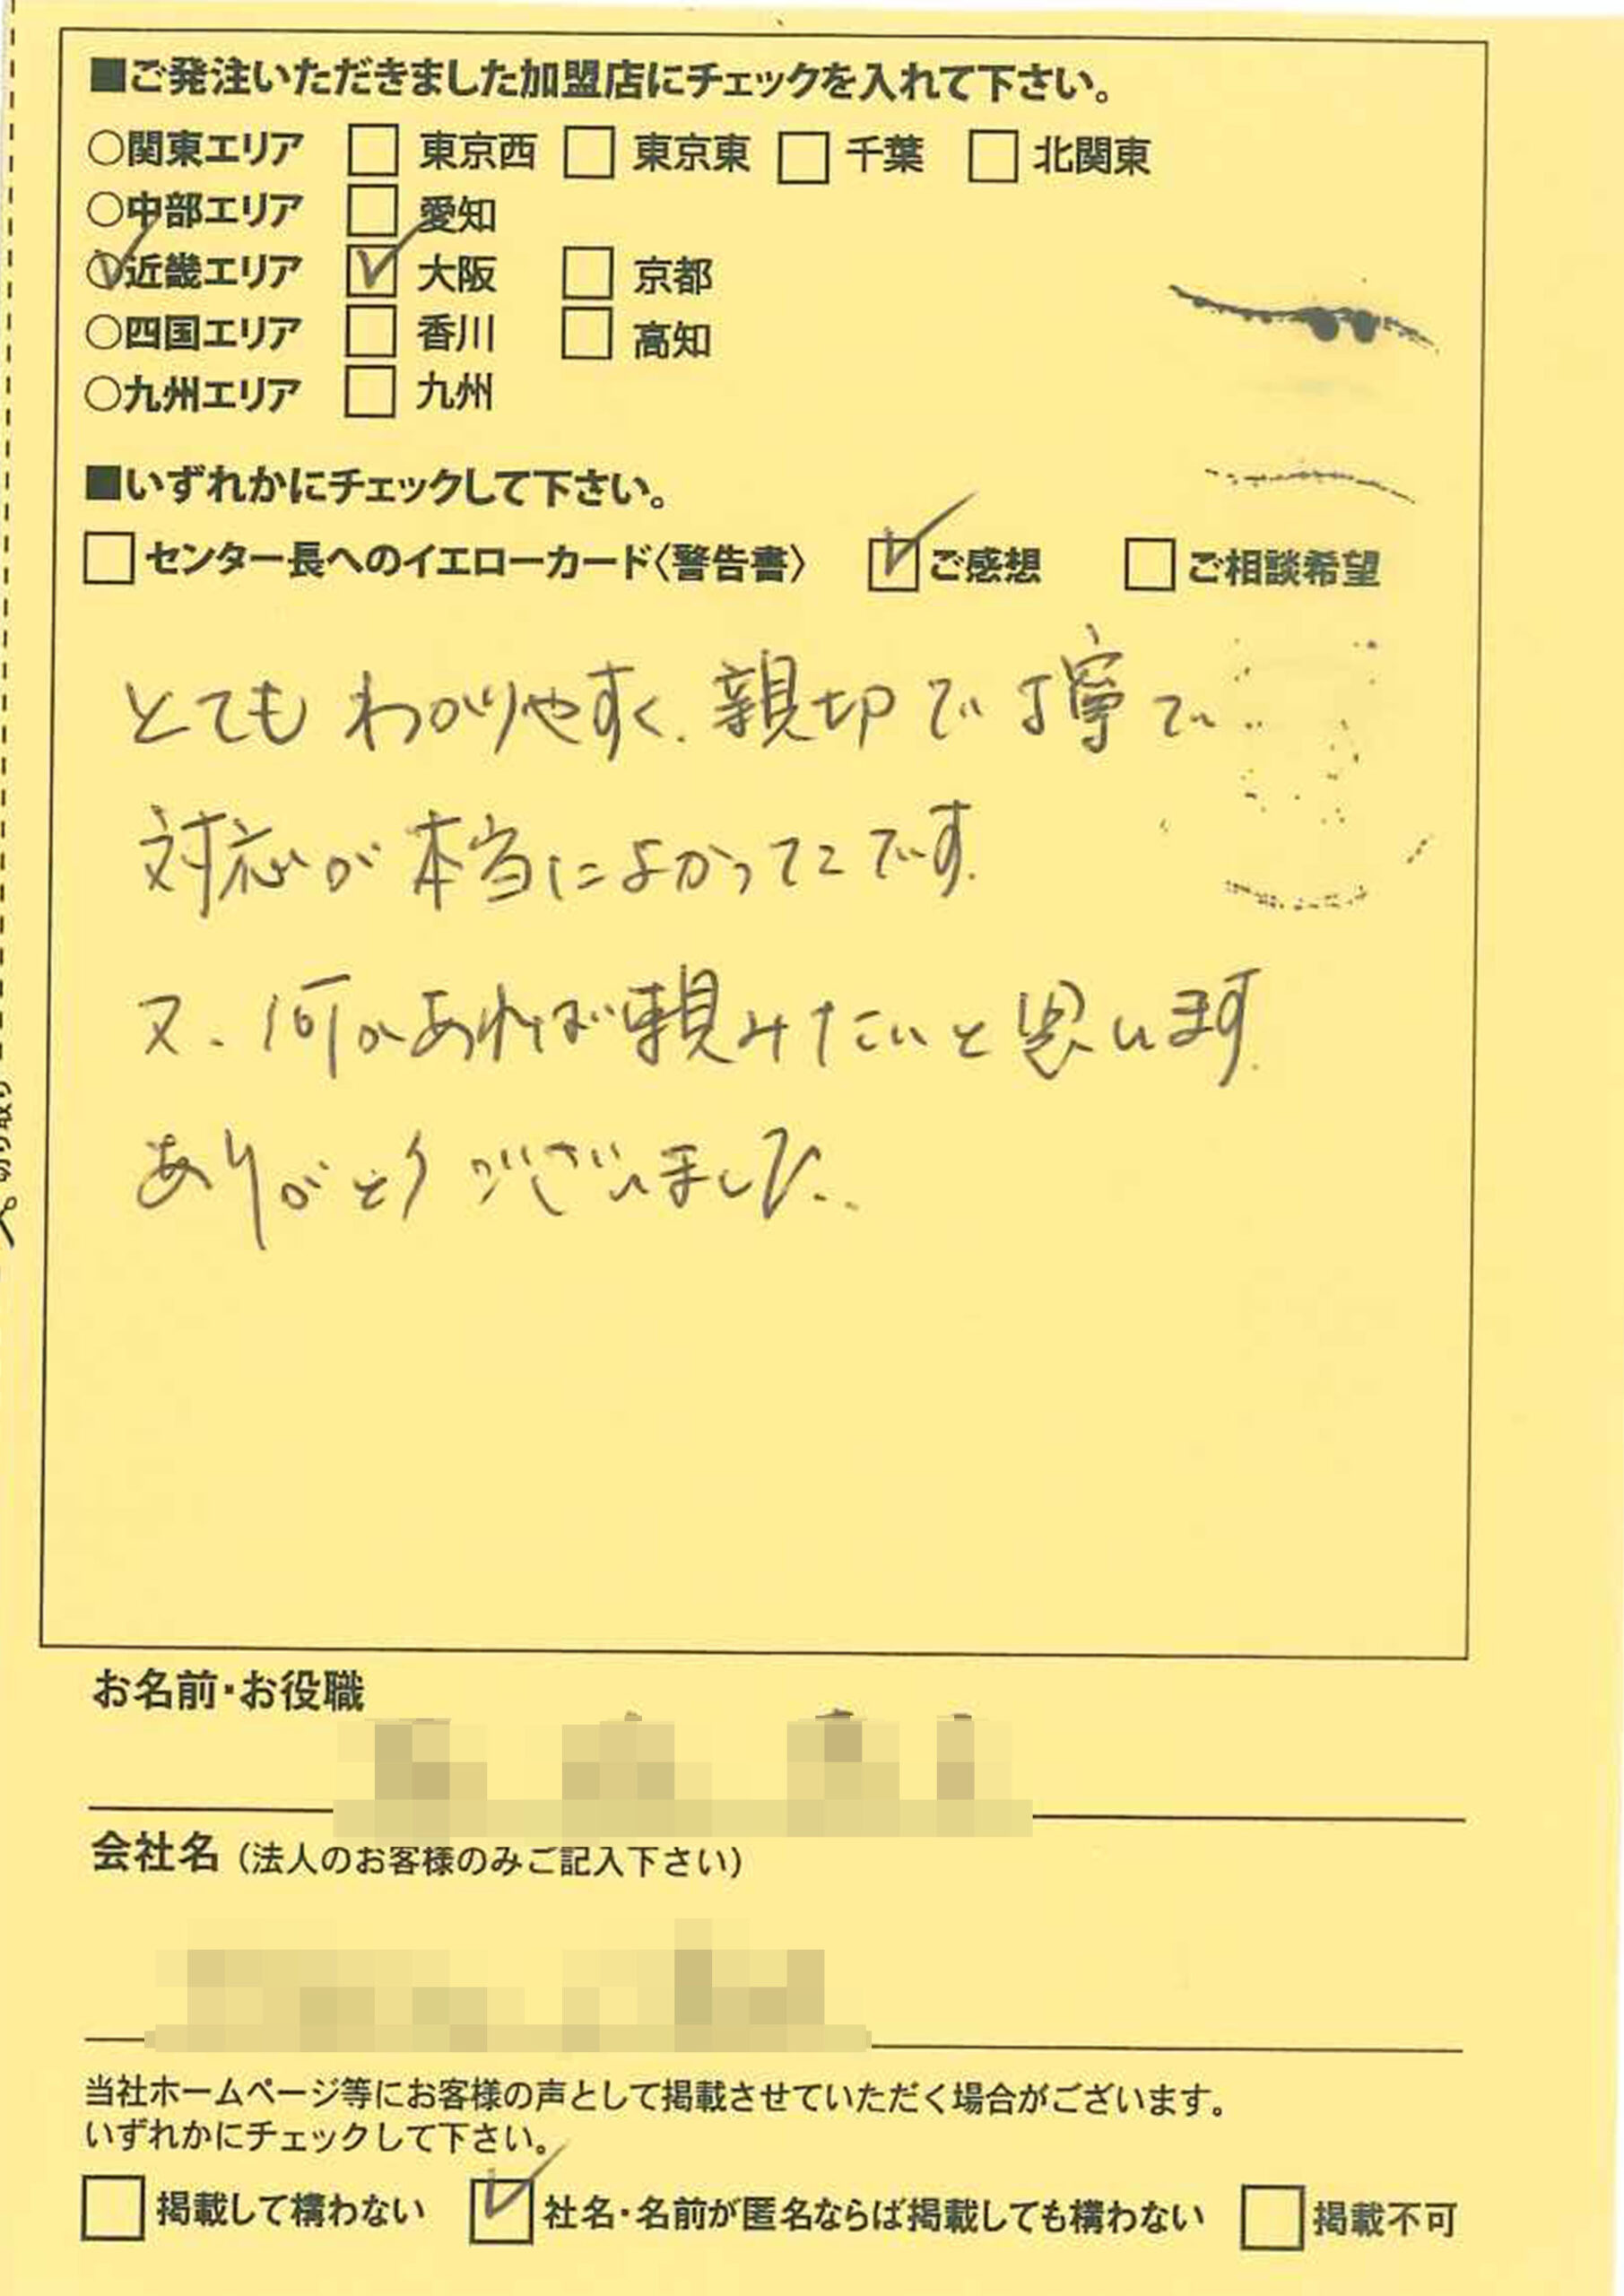 ■ご発注いただきました加盟店にチェックを入れて下さい。
○関東エリア □ 東京西 □ 東京東 □ 千葉 □ 北関東
○中部エリア □ 愛知
○近畿エリア ☑ 大阪 □ 京都
○四国エリア □ 香川 □ 高知
○九州エリア □ 九州
■いずれかにチェックして下さい。
□センター長へのイエローカード〈警告書〉 ☑ご感想 □ご相談希望
とても わかりやすく、親切で丁寧で
対応が本当によかったです。
又、何かあれば頼みたいと思います。
ありがとうございました。
お名前・お役職
会社名（法人のお客様のみご記入下さい）
当社ホームページ等にお客様の声として掲載させていただく場合がございます。
いずれかにチェックして下さい。
□掲載して構わない ☑社名・名前が匿名ならば掲載しても構わない □掲載不可